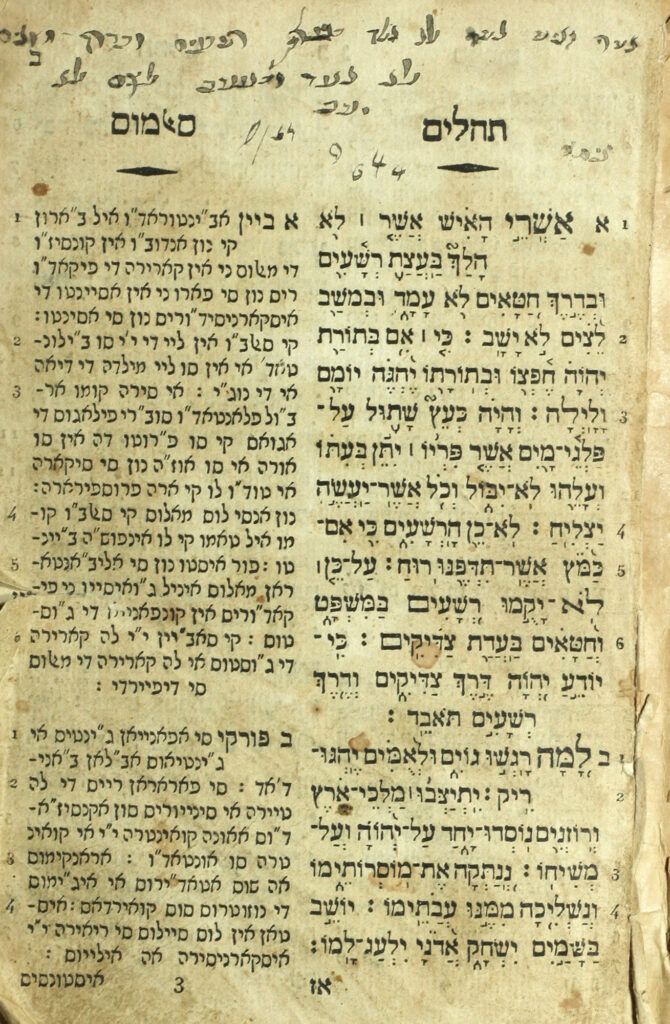 תהלים
סﭏמוס
644
1 א אַשְׁרֵי הָאִישׁ אֲשֶׁר ׀ לֹא
הָלַךְ בַּעֲצַת רְשָׁעִים
וּבְדֶרֶךְ חַטָּאִים לֹא עָמָד וּבְמוֹשַׁב
2 לֵצִים לֹא יָשָׁב : כִּי ׀ אִם בְּתוֹרַת
יְהוָֹה חֶפְצוֹ וּבְתוֹרָתוֹ יֶהְגֶּה יוֹמָם
3 וָלָיְלָה : וְהָיָה כְּעֵץ שָׁתוּל עַל־
פַּלְגֵי־מָיִם אֲשֶׁר פִּרְיוֹ ׀ יִתֵּן בְּעִתּוֹ
וְעָלֵהוּ לֹא־יִבּוֹל וְכֹל אֲשֶׁר־יַעֲשֶׂה
4 יַצְלִיחַ : לֹא־כֵן הָרְשָׁעִים כִּי אִם־
5 כַּמֹּץ אֲשֶׁר־תִּדְּפֶנּוּ רוּחַ : עַל־כֵּן ׀
לֹא־יָקֻמוּ רְשָׁעִים בַּמִּשְׁפָּט
6 וְחַטָּאִים בַּעֲדַת צַדִּיקִים : כִּי־
יוֹדֵעַ יְהוָֹה דֶּרֶךְ צַדִּיקִים וְדֶרֶךְ
רְשָׁעִים תֹּאבֵד :
1 ב לָמָּה רָגְשׁוּ גוֹיִם וּלְאֻמִּים יֶהְגּוּ־
2 רִיק : יִתְיַצְּבוּ ׀ מַלְכֵי־אֶרֶץ
וְרוֹזְנִים נוֹסְדוּ־יָחַד עַל־יְהוָֹה וְעַל־
3 מְשִׁיחוֹ : נְנַתְּקָה אֶת־מוֹסְרוֹתֵימוֹ
4 וְנַשְׁלִיכָה מִמֶּנּוּ עֲבֹתֵימוֹ : יוֹשֵׁב
בַּשָּׁמַיִם יִשְׂחָק אֲדֹנָי יִלְעַג־לָמוֹ :
אז
1 א ביין אב״ינטוראד״ו איל ב״ארון
קי נון אנדוב״ו אין קונסיז״ו
די מﭏוס ני אין קארירה די פיקאד״ו
רים נון סי פארו ני אין אסיינטו די
איסקארניסיד״ורים נון סי אסינטו:
2 קי סﭏב״ו אין ליי די י״י סו ב״ילונ־
טאד׳ אי אין סו ליי מילדה די דיאה
3 אי די נוג״י : אי סירה קומו אר־
ב״ול פלאנטאד״ו סוב״רי פילאגוס די
אגואס קי סו פ״רוטו דה אין סו
אורה אי סו אוז״ה נון סי סיקארה
אי טוד״ו לו קי ארה פרוספירארה:
4 נון אנסי לוס מאלוס קי סﭏב״ו קו־
מו איל טאמו קי לו אינפוש״ה ב״יינ־
5 טו : פור איסטו נון סי אליב״אנטא־
ראן מאלוס איניל ג״ואיסייו ני פי־
קאד״ורים אין קונפאנייא די ג״וס־
6 טוס : קי סאב״יין י״י לה קארירה
די ג״וסטוס אי לה קארירה די מﭏוס
סי דיפיירדי :
1 ב פורקי סי אפאנייאן ג״ינטיס אי
ג״ינטיאוס אב״לאן ב״אני־
2 ד״אד : סי פאראראן רייס די לה
טיירה אי סינייורים סון אקנסיז״א־
ד״וס אאונה קואינטרה י״י אי קואינ
3 טרה סו אונטאד״ו : אראנקימוס
אה סוס אטאד״ירוס אי איג״ימוס
4 די נוזוטרוס סוס קואירדאס : איס־
טאן אין לוס סיילוס סי ריאירה י״י
איסקארניסירה אה אילייוס :
3 איסטונסיס